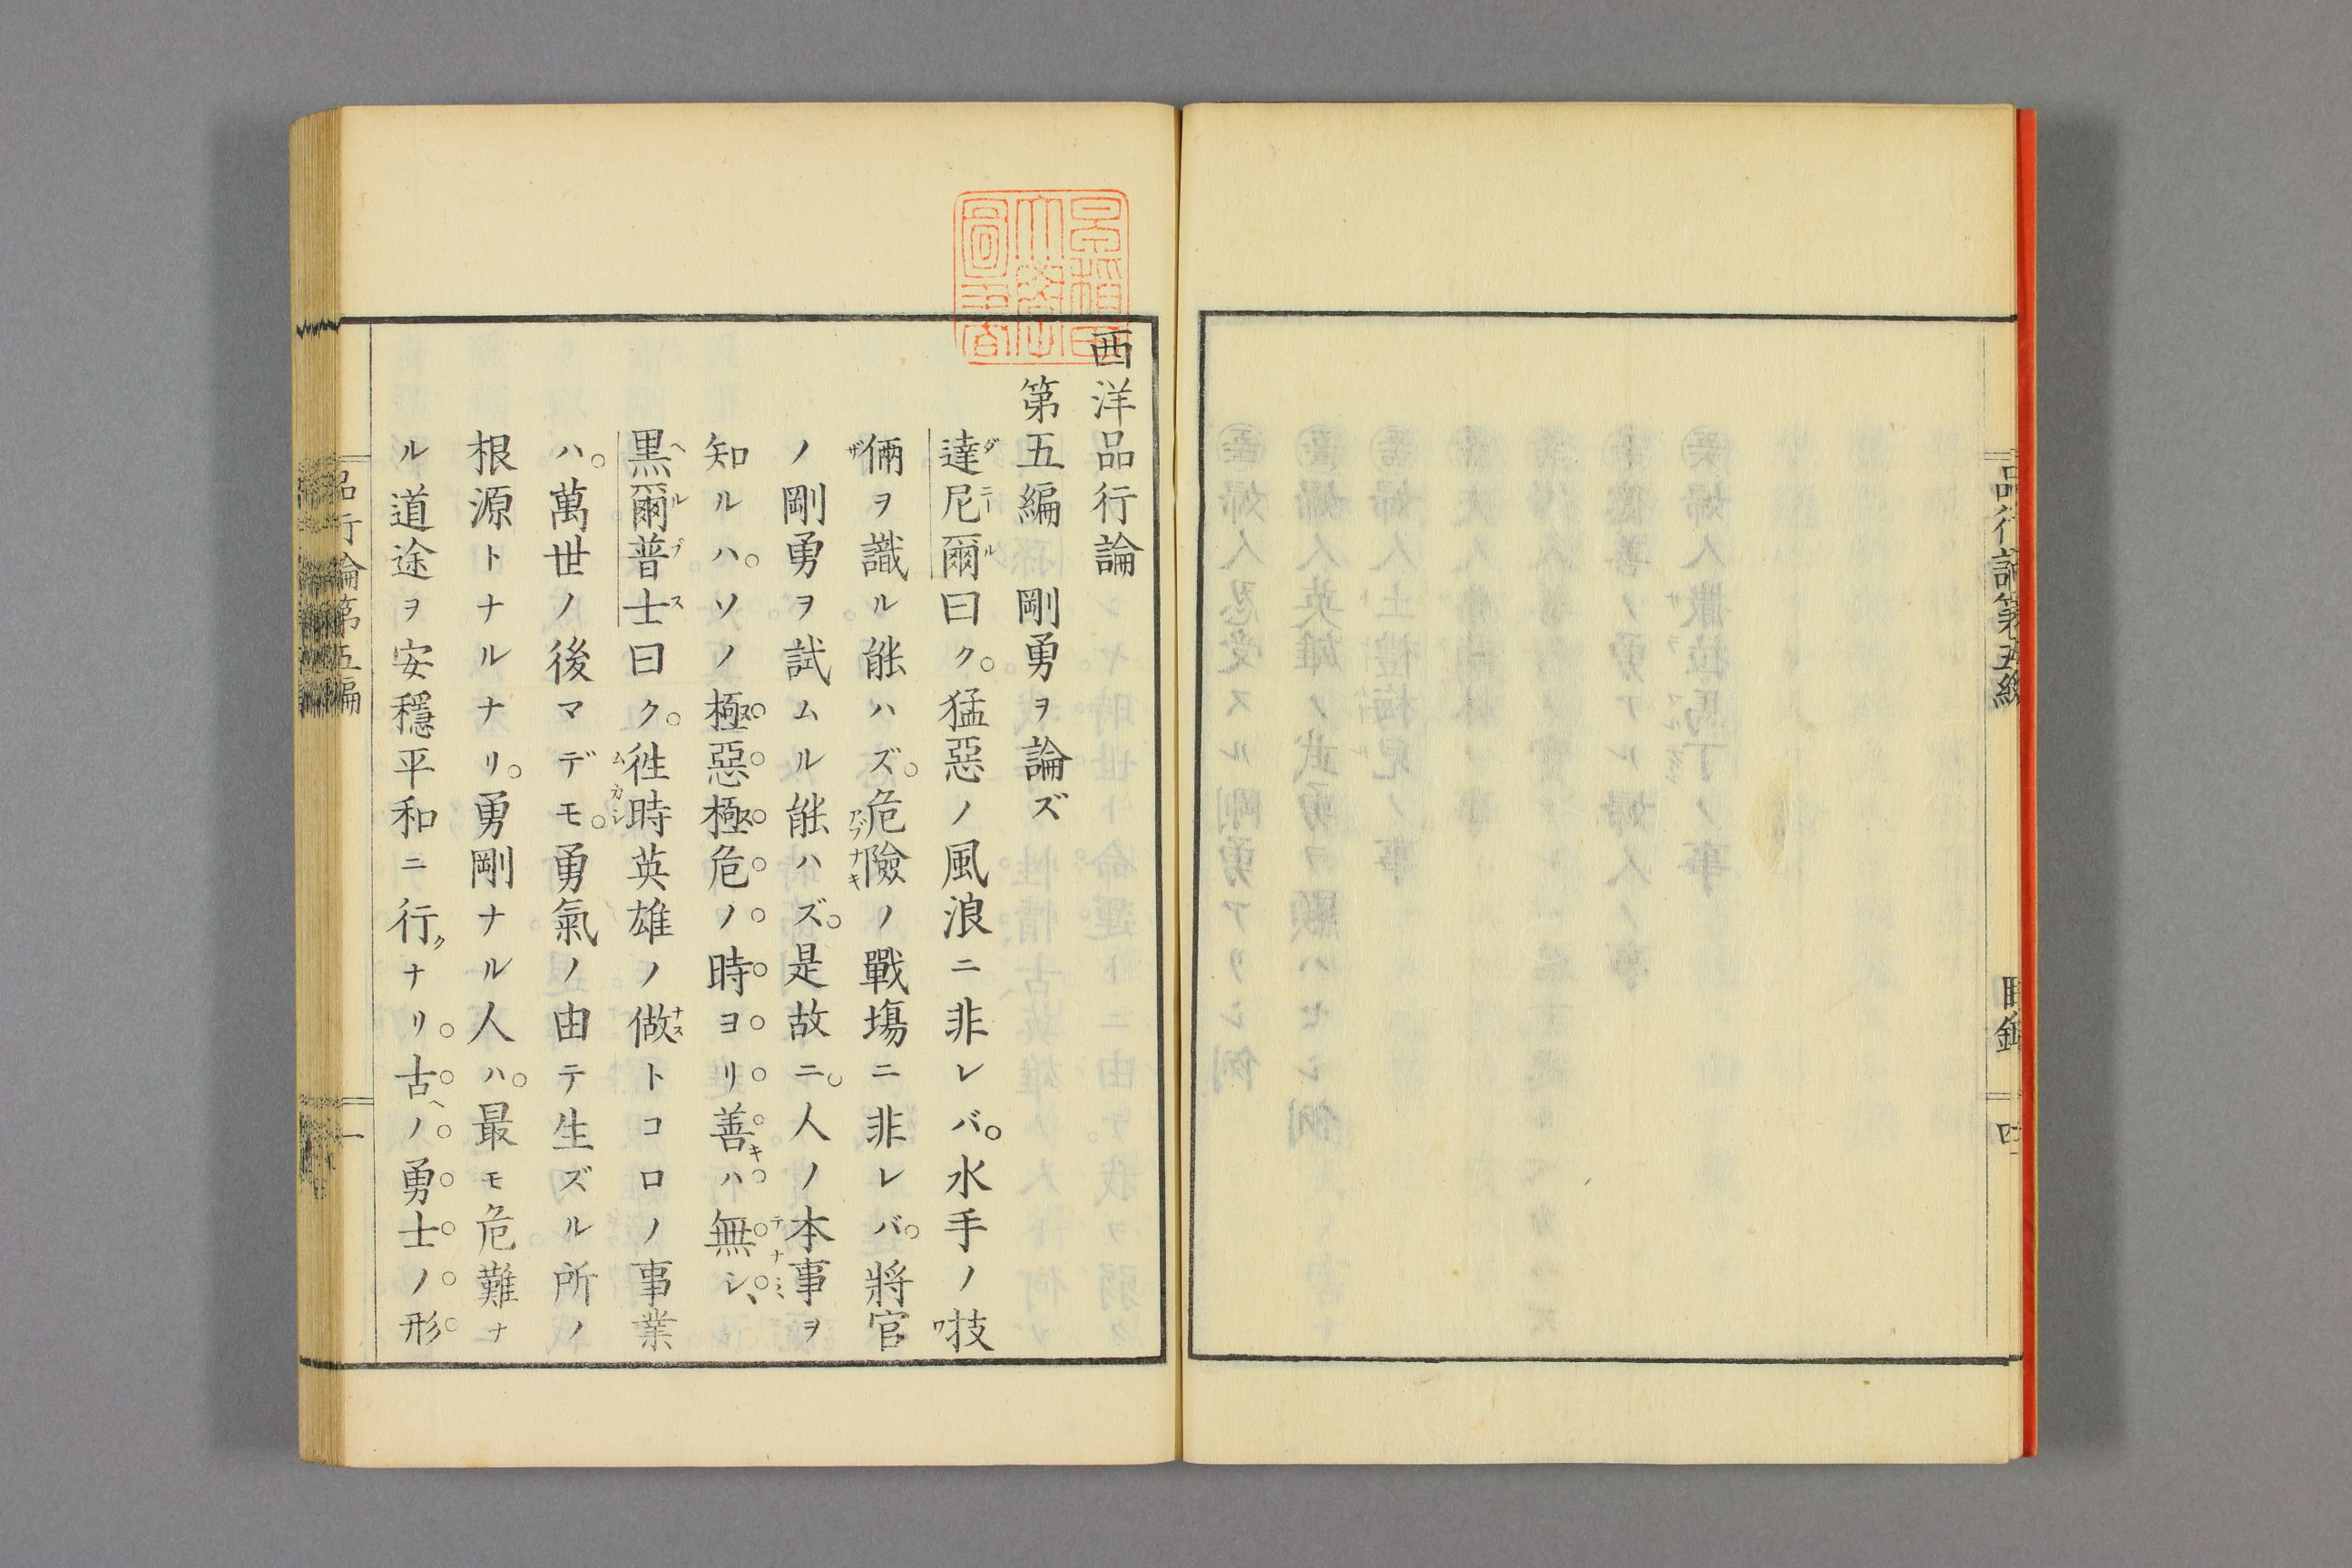 品行論第五編 目錄 四
西洋品行論
第五編 剛勇ヲ論ズ
達尼爾曰ク。猛惡ノ風浪ニ非レバ。水手ノ技
倆ヲ識ル能ハズ。危險ノ戰塲ニ非レバ。將官
ノ剛勇ヲ試ムル能ハズ。是故ニ。人ノ本事ヲ
知ルハ。ソノ極惡極危ノ時ヨリ善キハ無シ、
黒爾普士曰ク。徃時英雄ノ做ストコロノ事業
ハ。萬世ノ後マデモ。勇氣ノ由テ生ズル所ノ
根源トナルナリ。勇剛ナル人ハ。最モ危難ナ
ル道途ヲ安穩平和ニ行クナリ。古ヘノ勇士ノ形
品行論第五編 一